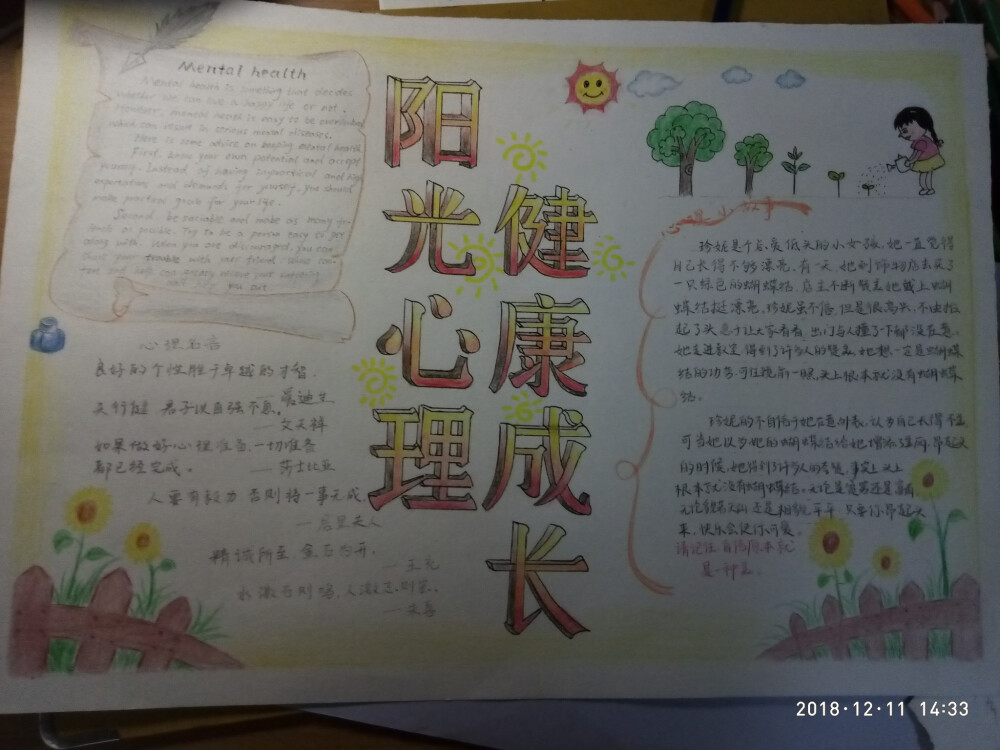 Mental health
Mental health is something that decides
whether we can live a happy life or not.
However, mental health is easy to be overlooked
which can result in serious mental diseases.
Here is some advice on keeping mental health
First, know your own potential and accept
yourself. Instead of having impractical and high
expectations and demands for yourself, you should
make practical goals for your life.
Second, be sociable and make as many
as possible. Try to be a person easy to get
along with. When you are discouraged, you can
share your trouble with your friend
心理名言
良好的个性胜于卓越的才智.
——爱迪生
天行健 君子以自强不息.
——文天祥
如果做好心理准备.一切准备
都已经完成。 ——莎士比亚
人要有毅力 否则将一事无成
——居里夫人
精诚所至 金石为开.
——王充
水激石则鸣,人激志则宏.
阳光心理
健康成长
小故事
珍妮是个总爱低头的小女孩,她一直觉得
自己长得不够漂亮.有一天.她到饰物店去买了
一只绿色的蝴蝶结.店主不断赞美她戴上蝴
蝶结挺漂亮.珍妮虽不信,但是很高兴.不由抬
起了头 急于让大家看看.出门与人撞了下都没在意.
她走进教室 得到了许多人的赞美.她想一定是蝴蝶
结的功劳.可往镜前一照.头上根本就没有蝴蝶
结.
珍妮的不自信于她在意外表,认为自己长得不
可当她以为她的蝴蝶结给她增添 昂起头
的时候.她得到了许多人的 事实上头上
根本就没有蝴蝶结.无论是贫穷还是富
无论 还是相貌平平 只要你昂起头
来.快乐会使你可爱.
请记住 自信原本就
是一种美.
2018·12·11 14:33